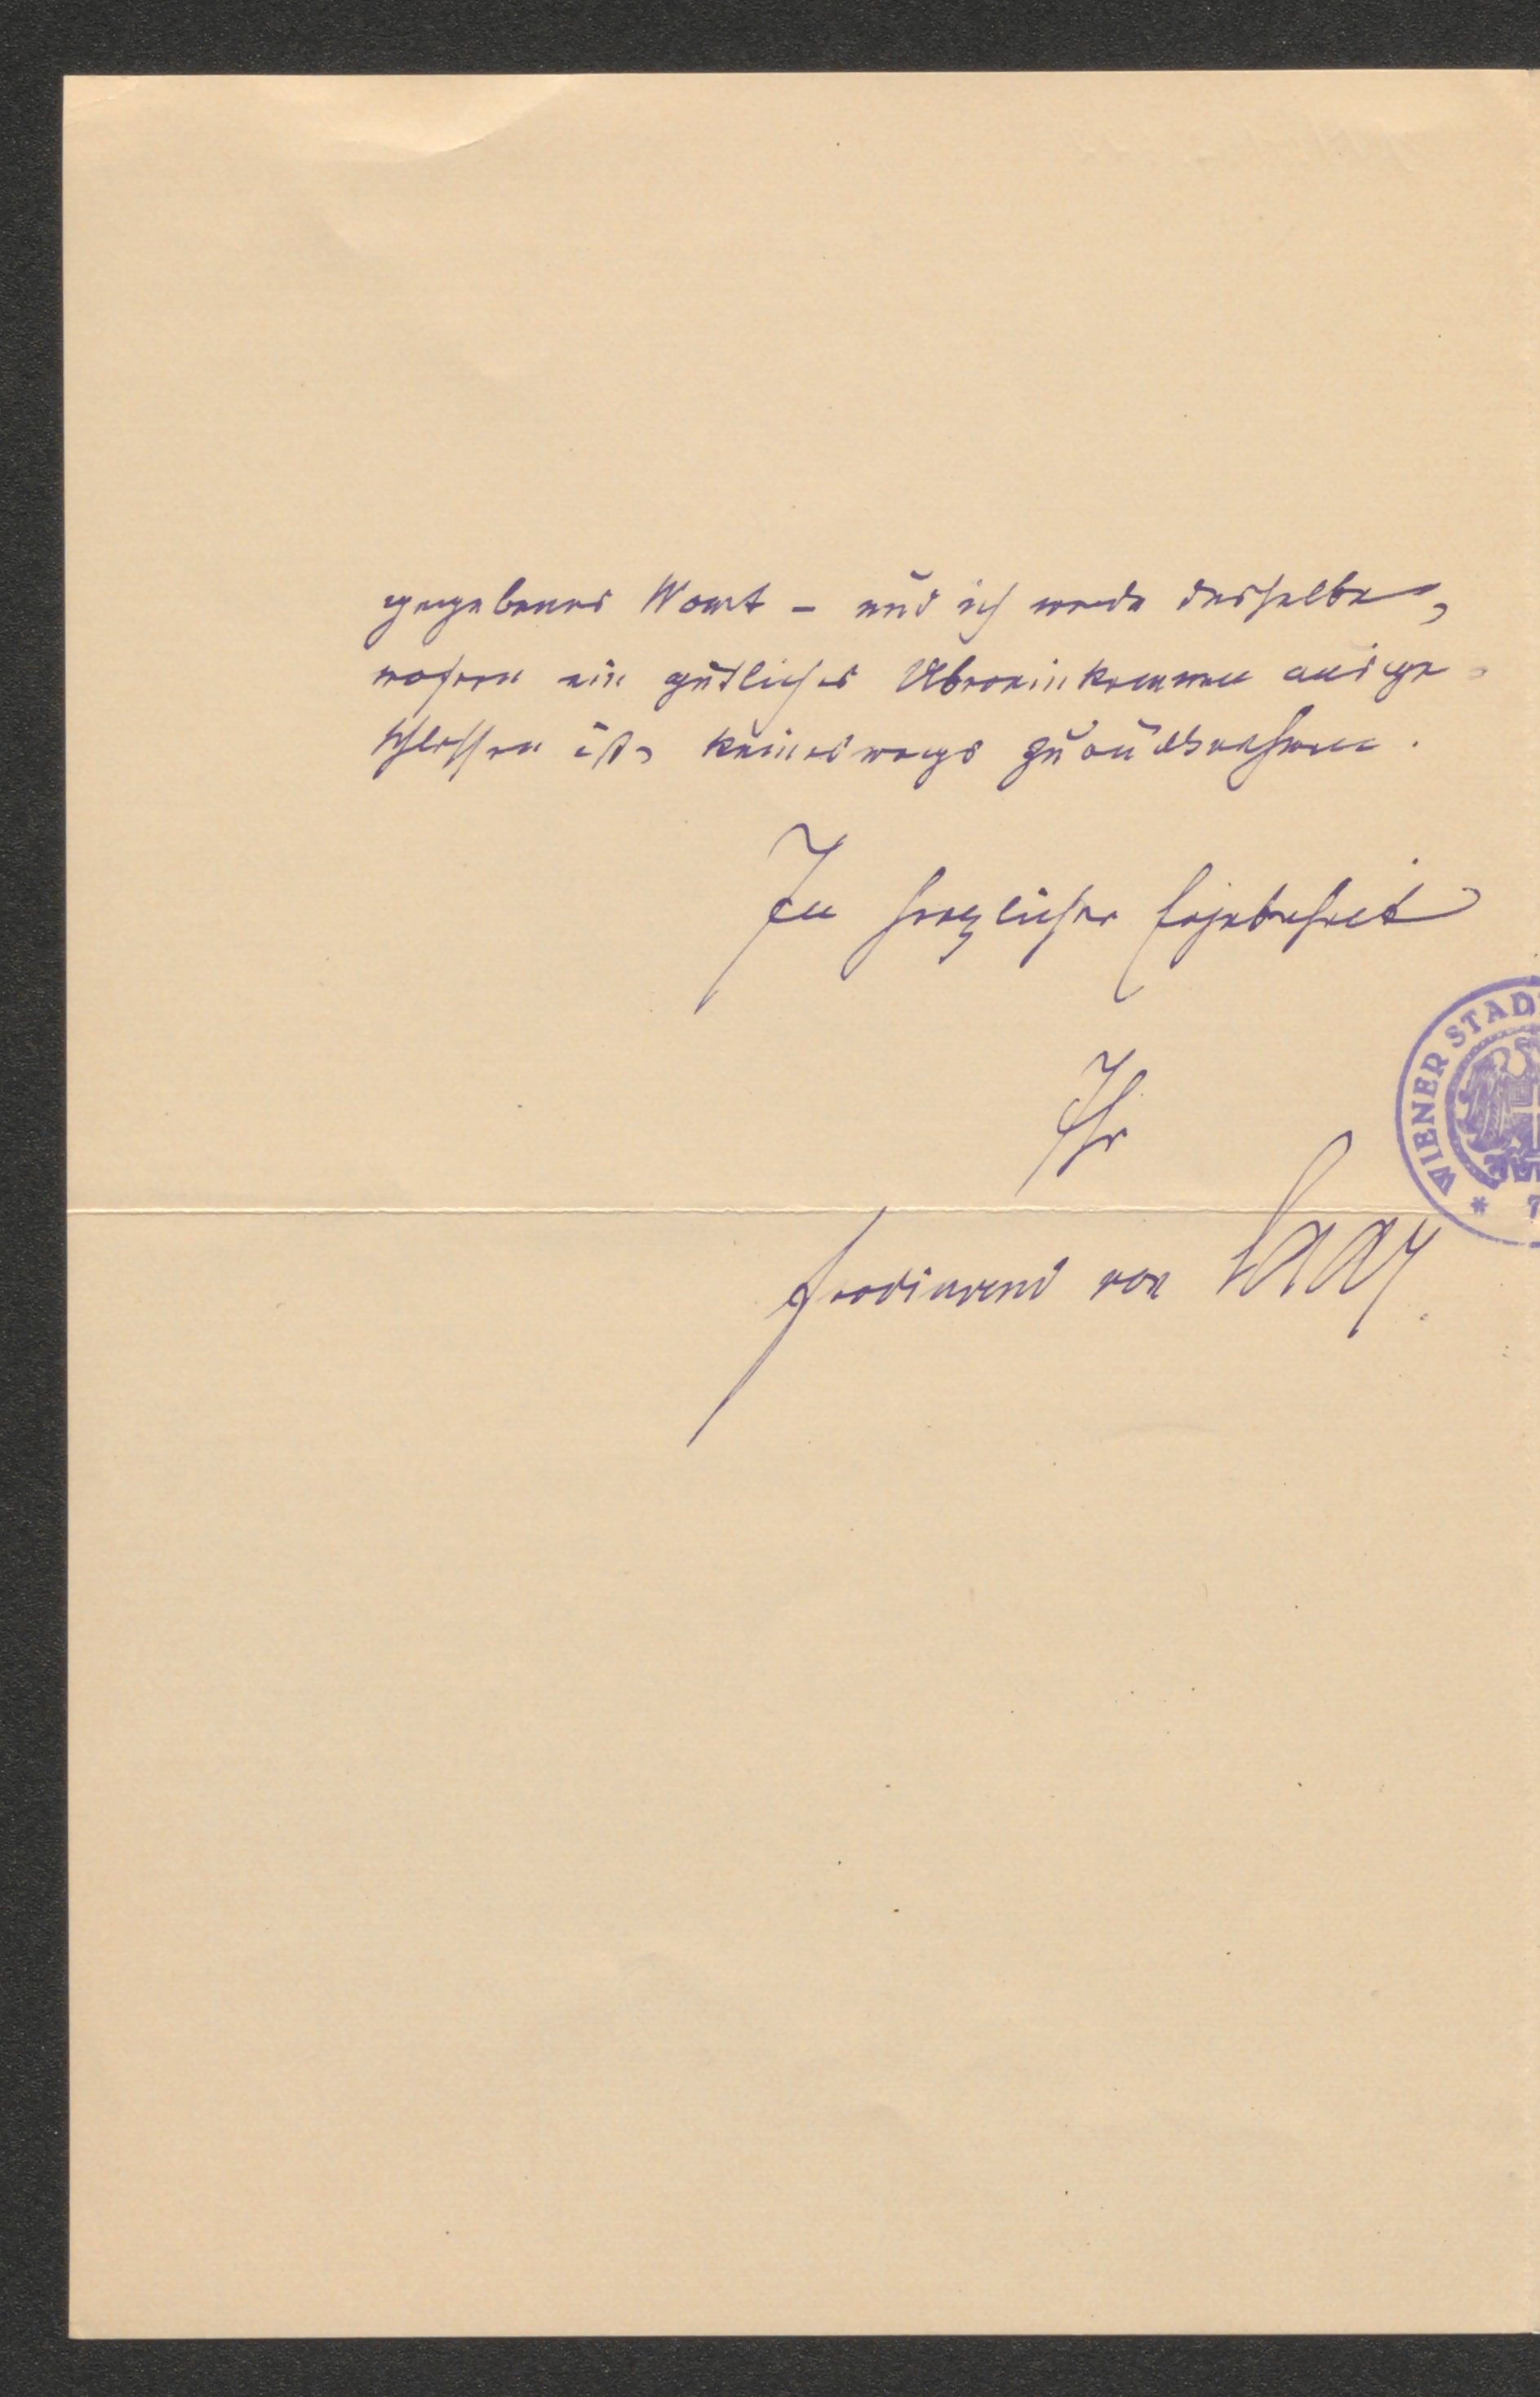 gegebenes Wort – und ich werde dasselbe,
wofern ein gütliches Übereinkommen ausge-
schlossen ist, keineswegs zurücknehmen.
In herzlicher Ergebenheit
Ihr
Ferdinand von Saar.
WIENER STAD
* 7